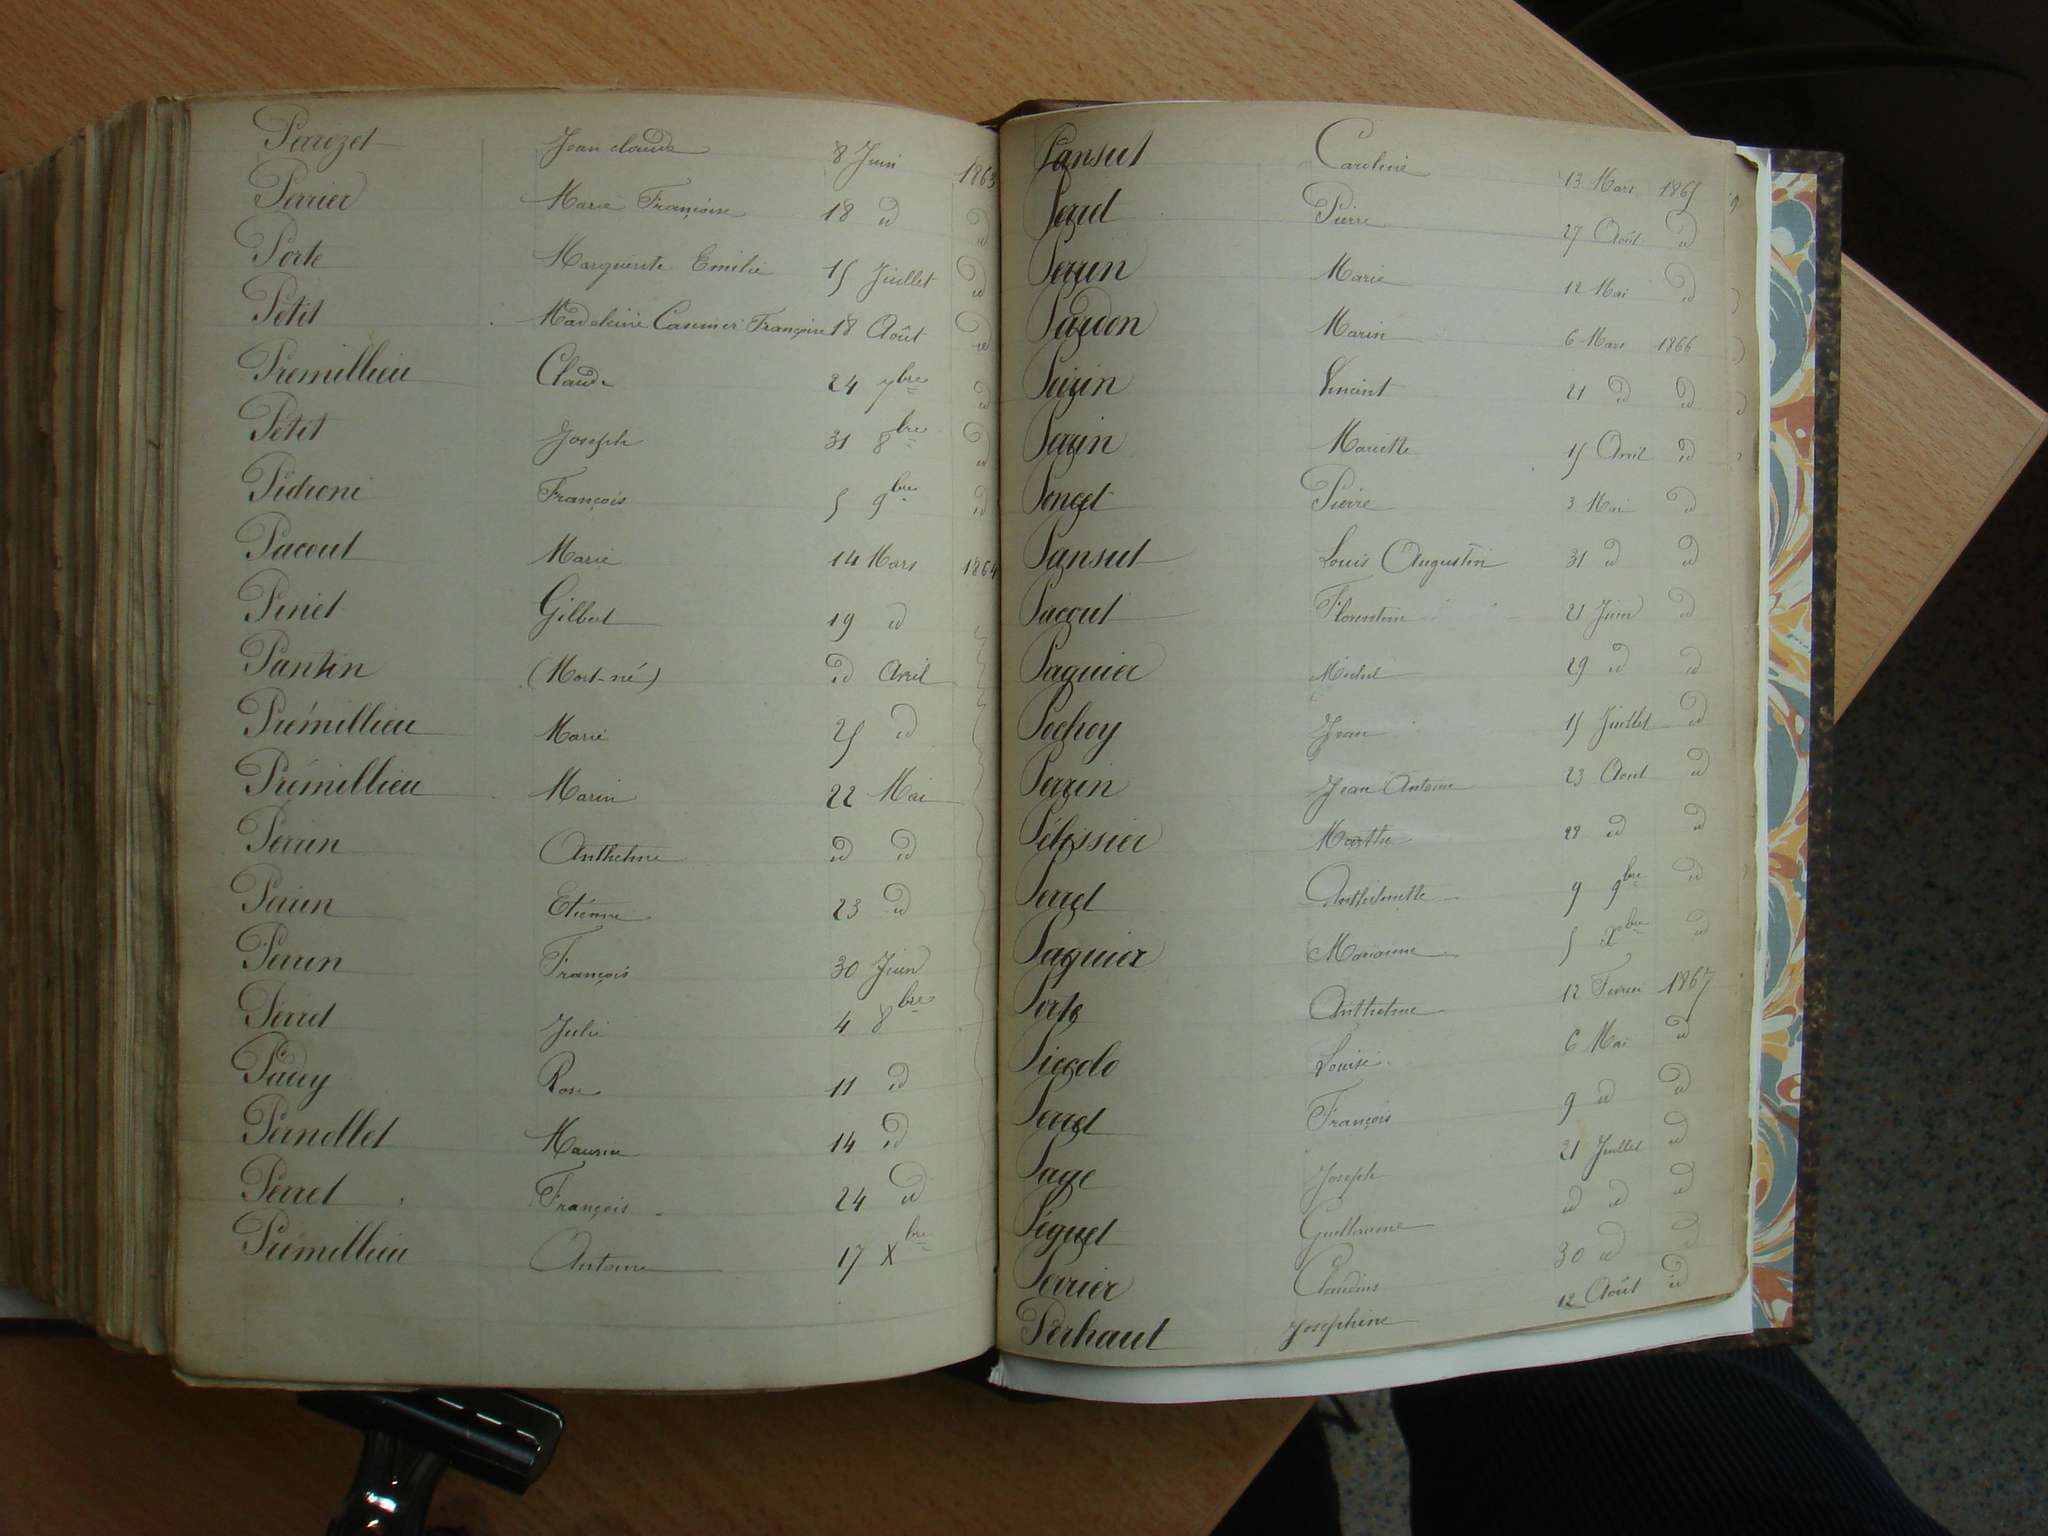 Perrozet Jean claude 8 Juin 1863
Perrier Marie Françoise 18 id id
Porte Marguerite Emilie 15 Juillet id
Petit Madeleine Casimir Françoise 18 Août id
Premillieu Claude 24 7bre id
Petit Joseph 31 8bre id
Pidroni François 5 9bre id
Pacout Marie 14 Mars 1864
Pinet Gilbert 19 id
Pantin (Mort-né) id Avril
Prémillieu Marie 25 id
Prémillieu Marin 22 Mai
Perrin Anthelme id id
Perrin Etienne 23 id
Perrin François 30 Juin
Perret Julie 4 8bre
Rose 11 id
Pernollet Maurice 14 id
Perret François 24 id
Prémillieu Antoine 17 Xbre
Pansut Caroline 13 Mars 1865
Pierre 27 Août id
Perrin Marie 12 Mai id
Marin 6 Mars 1866
Perrin Vincent 21 id id
Perrin Mariette 15 Avril id
Poncet Pierre 3 Mai id
Pansut Louis Augustin 31 id id
Pacout Florentine 21 Juin id
Paquier Michel 29 id id
Pochoy Jean 15 Juillet id
Perrin Jean Antoine 23 Aout id
Pélissier Marthe 28 id id
Perret Anthelmette 9 9bre id
Paquier Marianne 5 Xbre id
Porte Anthelme 12 Fevrier 1867
Piccolo Louise 6 Mai id
Perret François 9 id id
Page Joseph 21 Juillet id
Péguet Guillaume id id id
Perrier Claudius 30 id id
Perhaut Josephine 12 Août id